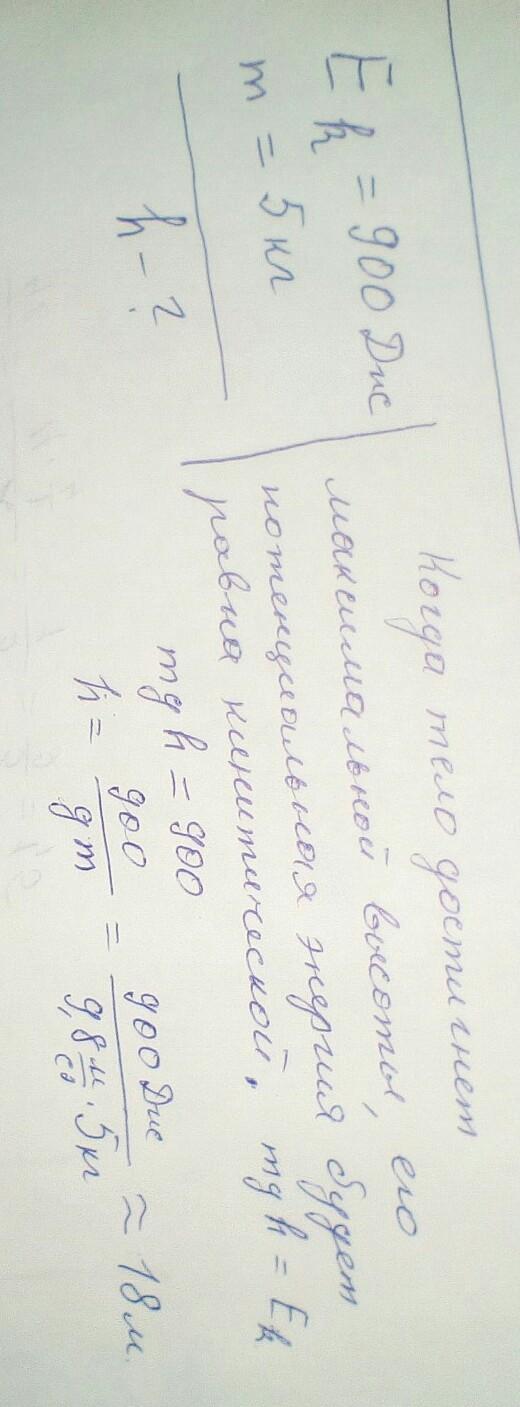 Ek = 900 Дж
m = 5 кг
h - ?
Когда тело достигнет
максимальной высоты, его
потенциальная энергия будет
равна кинитической. mgh = Ek
mgh = 900
h = 900/gm = 900 Дж/9,8 м/с² · 5 кг ≈ 18 м.